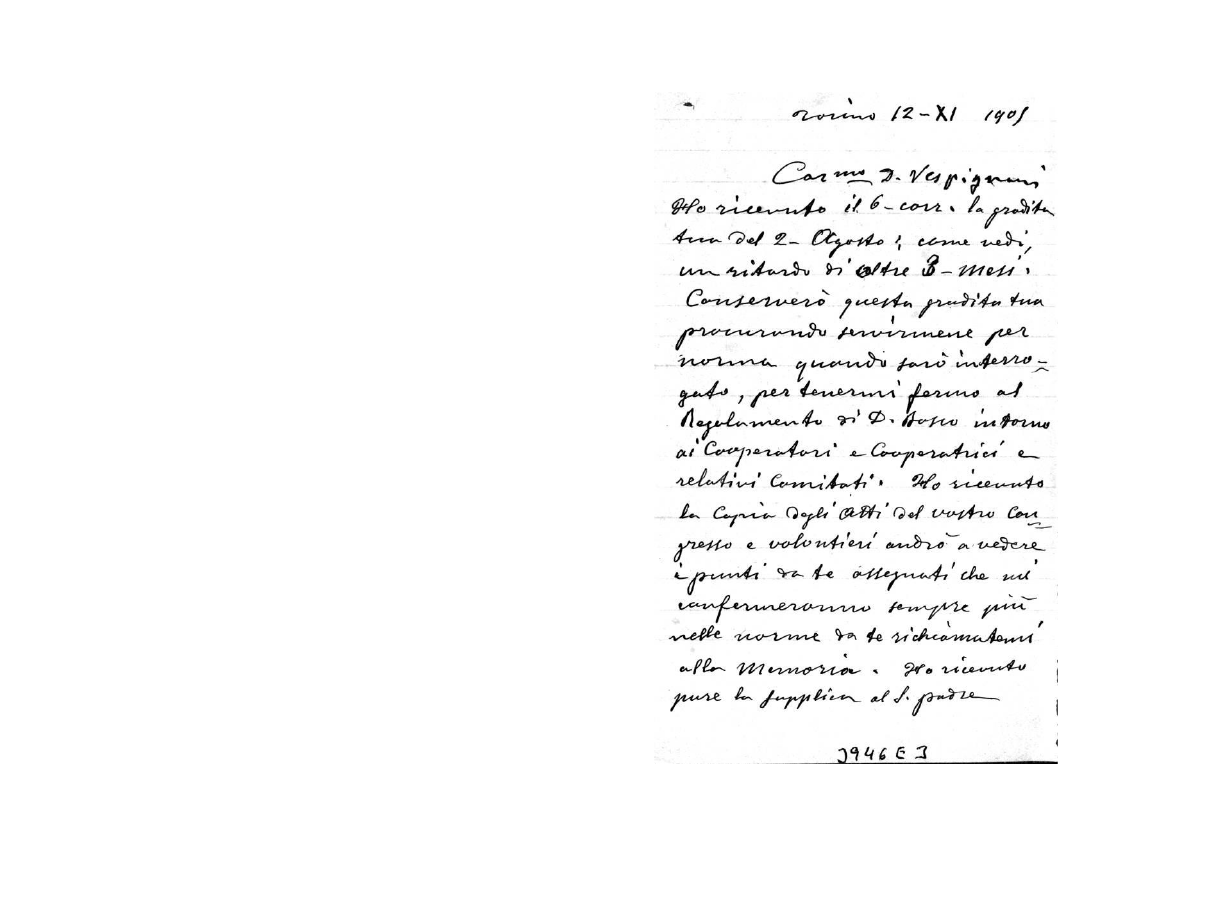 Torino 12-XI 1905
Car.mo D. Vespignani
Ho ricevuto il 6- corr. la gradita
tua del 2- Agosto; come vedi,
un ritardo di oltre 3- mesi.
Conserverò questa gradita tua
procurando servirmene per
norma quando sarò interro-
gato, per tenermi fermo al
Regolamento di D. Bosco intorno
ai Cooperatori e Cooperatrici e
relativi Comitati. Ho ricevuto
la Copia degli Atti del vostro Con
gresso e volontieri andrò a vedere
i punti da te assegnati che mi
confermeranno sempre più
nelle norme da te richiamatemi
alla memoria. Ho ricevuto
pure la supplica al S. padre
3946 E 3